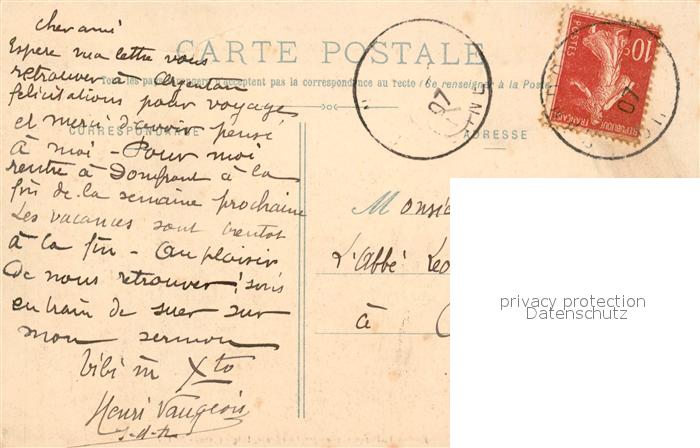 cher ami
Espere ma lettre vous
retrouver à Argentan
félicitations pour voyage
et merci d'avoir pensé
à moi - Pour moi
rentre à Domfront à la
fin de la semaine prochaine
Les vacances sont bientot
à la fin - Au plaisir
de nous retrouver! suis
en train de suer sur
mon sermon
tibi in Xto
Henri Vaugeois
s-d-r
CARTE POSTALE
Tous les pays étrangers n'acceptent pas la correspondance au recto (Se renseigner à la Poste)
CORRESPONDANCE
ADRESSE
Monsi
L'Abbé Leo
à
10c
POSTES
REPUBLIQUE FRANÇAISE
07
07
privacy protection
Datenschutz